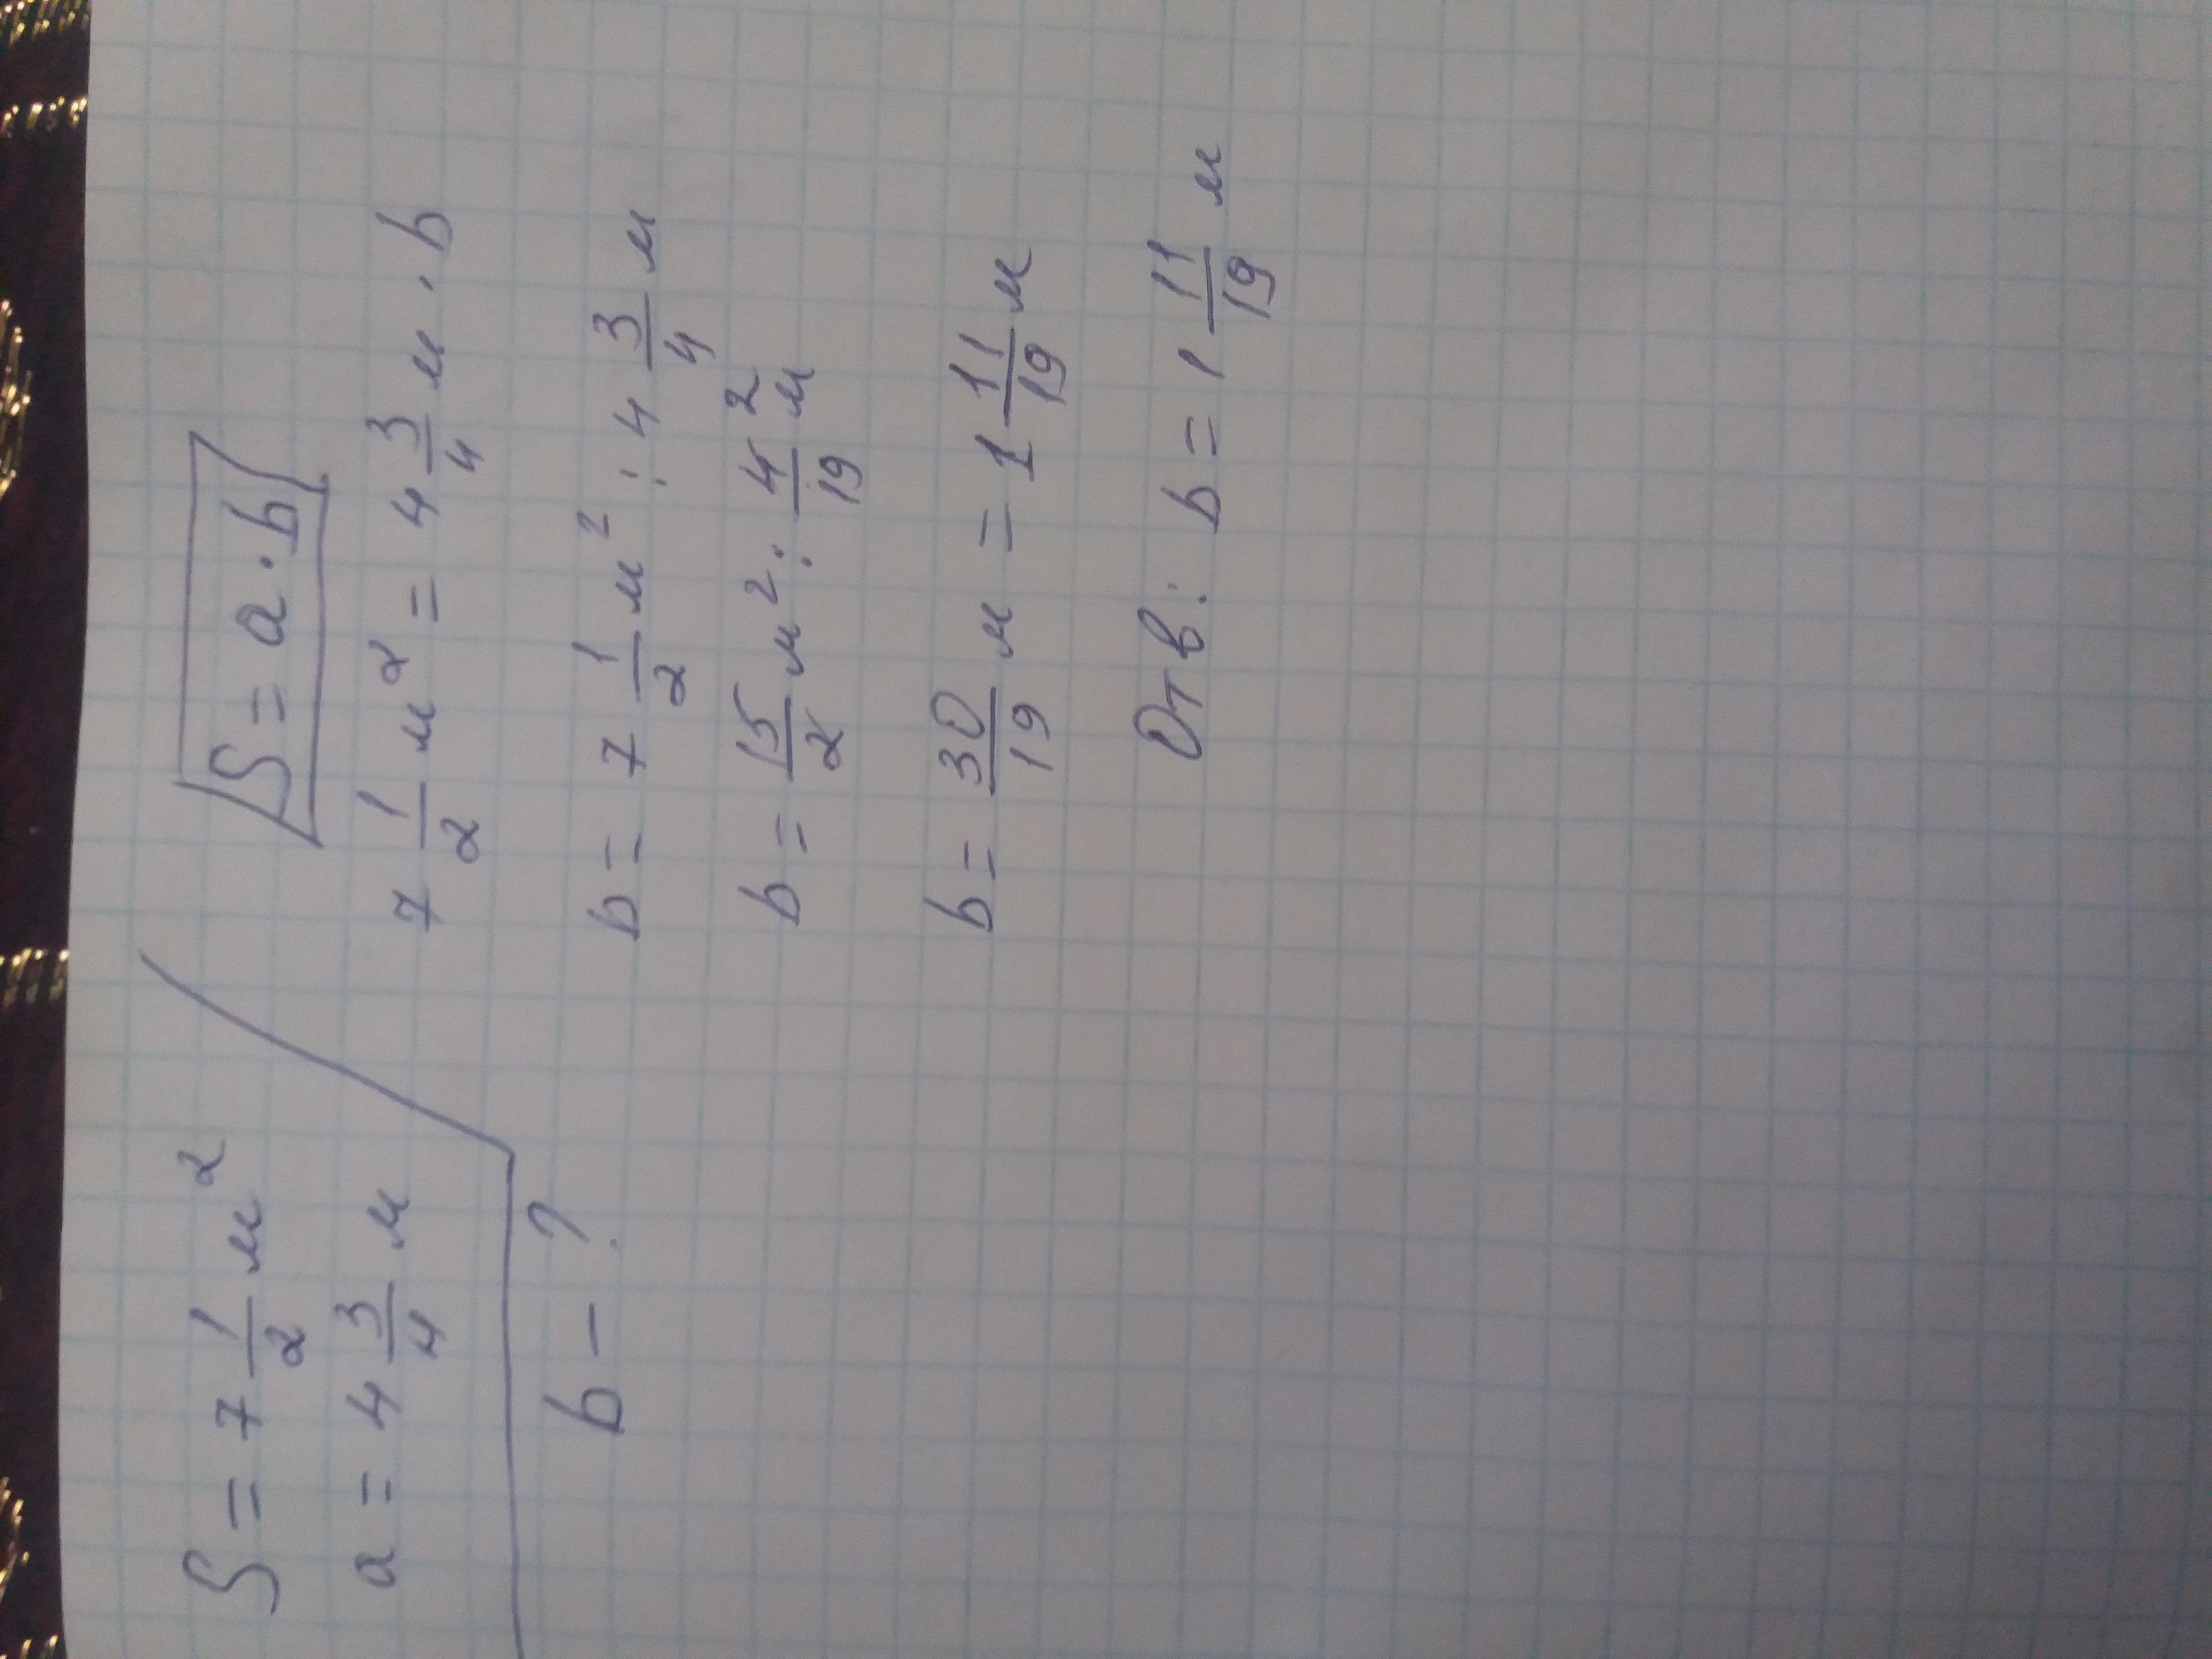 S = 7 1/2 м²
a = 4 3/4 м
b - ?
S = a · b
7 1/2 м² = 4 3/4 м · b
b = 7 1/2 м² : 4 3/4 м
b = 15/2 м² : 4/19 м
b = 30/19 м = 1 11/19 м
Отв: b = 1 11/19 м